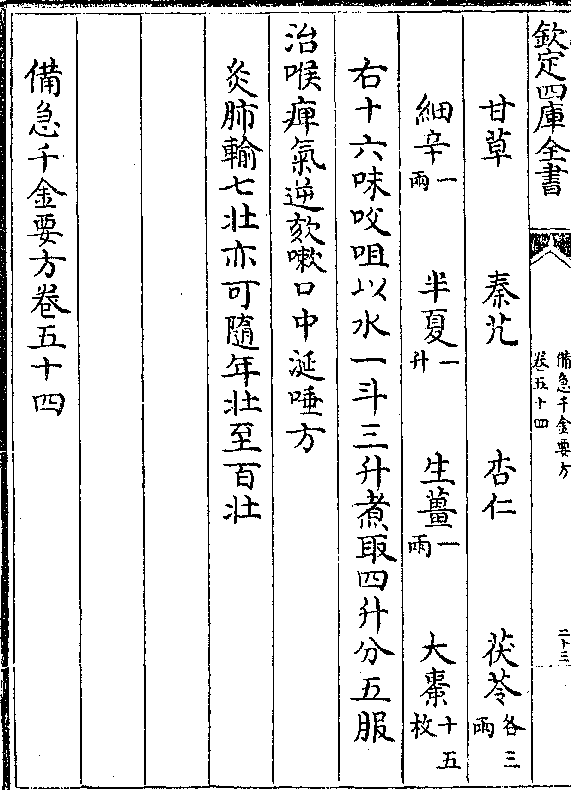 欽定四庫全書
備急千金要方
卷五十四
二十三
甘草 秦艽 杏仁 茯苓各三兩
細辛一兩 半夏一升 生薑一兩 大棗十五枚
右十六味㕮咀以水一斗三升煮取四升分五服
治喉痺氣逆欬嗽口中涎唾方
灸肺輸七壯亦可隨年壯至百壯
備急千金要方卷五十四